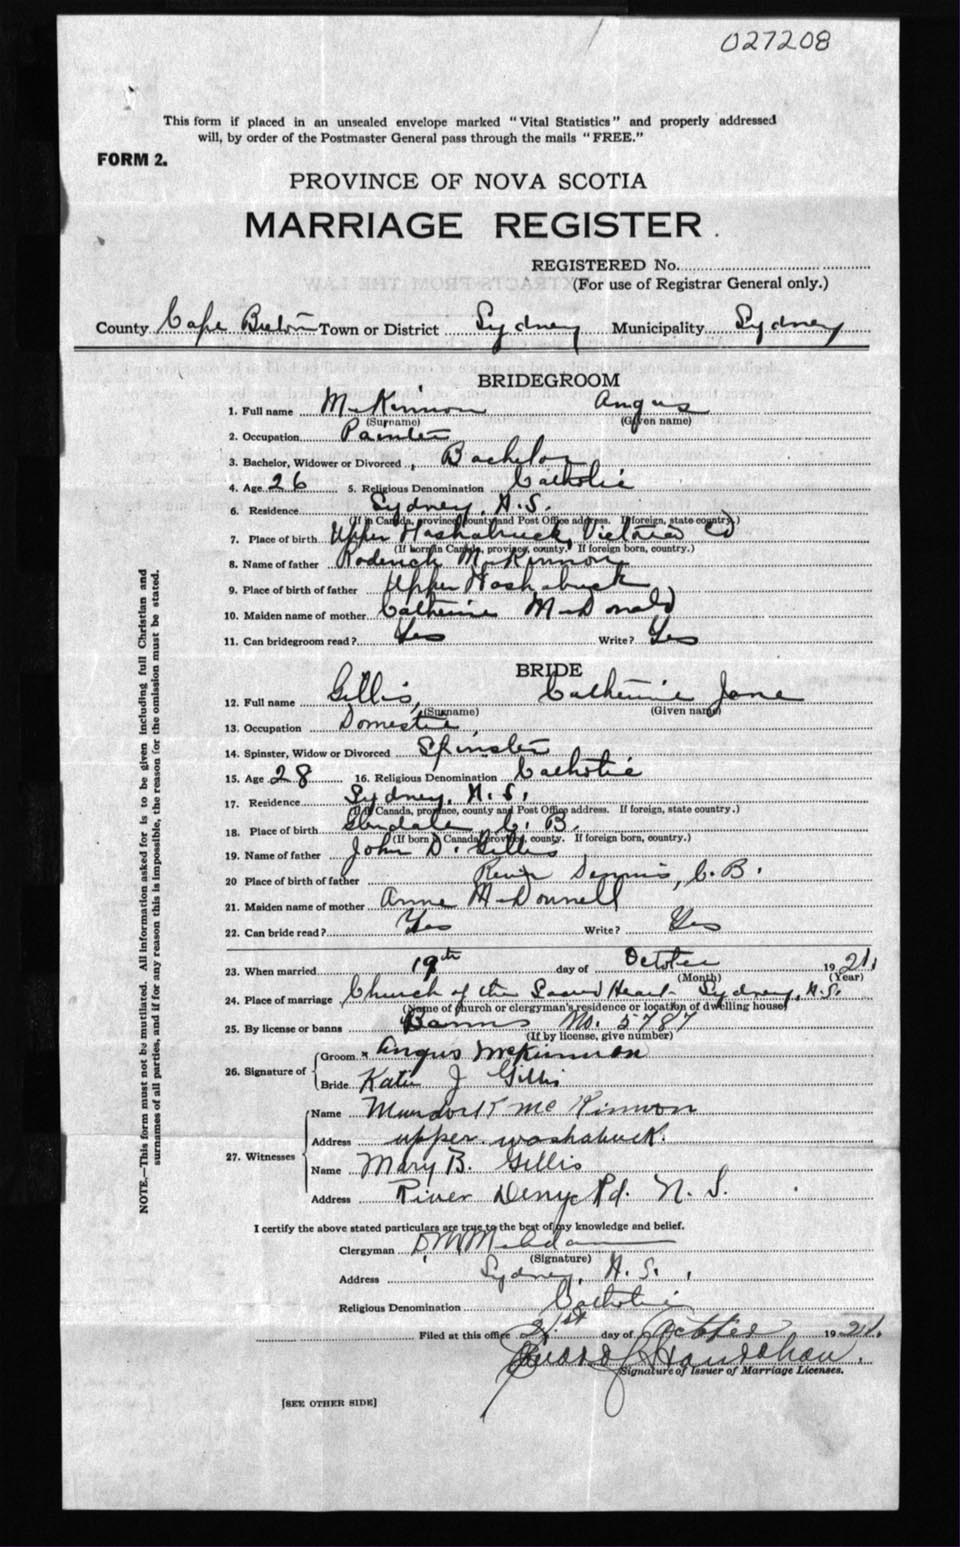 027208
This form if placed in an unsealed envelope marked "Vital Statistics" and properly addressed
will, by order of the Postmaster General pass through the mails "FREE."
FORM 2.
PROVINCE OF NOVA SCOTIA
MARRIAGE REGISTER
REGISTERED No.
(For use of Registrar General only.)
County Cape Breton Town or District Sydney Municipality Sydney
BRIDEGROOM
1. Full name McKinnon Angus
(Surname) (Given name)
2. Occupation Painter
3. Bachelor, Widower or Divorced Bachelor
4. Age 26 5. Religious Denomination Catholic
6. Residence Sydney, N.S.
(If in Canada, province, county and Post Office address. If foreign, state country.)
7. Place of birth Upper Washabuck, Victoria Co
(If born in Canada, province, county. If foreign born, country.)
8. Name of father Roderick McKinnon
9. Place of birth of father Upper Washabuck
10. Maiden name of mother Catherine McDonald
11. Can bridegroom read? Yes Write? Yes
BRIDE
12. Full name Gillis, Catherine Jane
(Surname) (Given name)
13. Occupation Domestic
14. Spinster, Widow or Divorced Spinster
15. Age 28 16. Religious Denomination Catholic
17. Residence Sydney, N.S.
(If in Canada, province, county and Post Office address. If foreign, state country.)
18. Place of birth Glendale C. B.
(If born in Canada, province, county. If foreign born, country.)
19. Name of father John D. Gillis
20 Place of birth of father River Dennis, C.B.
21. Maiden name of mother Anne McDonnell
22. Can bride read? Yes Write? Yes
23. When married 19th day of October 1921.
(Month) (Year)
24. Place of marriage Church of the Sacred Heart Sydney, N.S.
(Name of church or clergyman's residence or location of dwelling house)
25. By license or banns Banns No. 5787
(If by license, give number)
26. Signature of Groom Angus McKinnon
Bride Katie J Gillis
27. Witnesses Name McKinnon
Address upper washabuck.
Name Mary B. Gillis
Address River Denys Rd. N. S.
I certify the above stated particulars are true to the best of my knowledge and belief.
Clergyman
(Signature)
Address Sydney, N.S.
Religious Denomination Catholic
Filed at this office 21st day of October 1921.
Signature of Issuer of Marriage Licenses.
[SEE OTHER SIDE]
NOTE.—This form must not be mutilated. All information asked for is to be given including full Christian and
surnames of all parties, and if for any reason this is impossible, the reason for the omission must be stated.